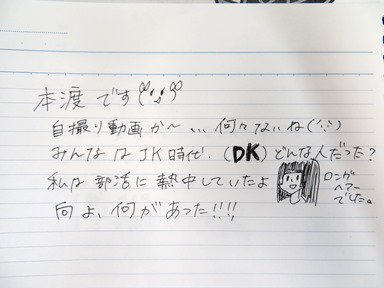 本渡です
自撮り動画か〜…何々ないね(‘;’)
みんなはJK時代(DK)どんな人だった？
私は部活に熱中していたよ
ロングヘアーでした。
向よ、何があった!!!!